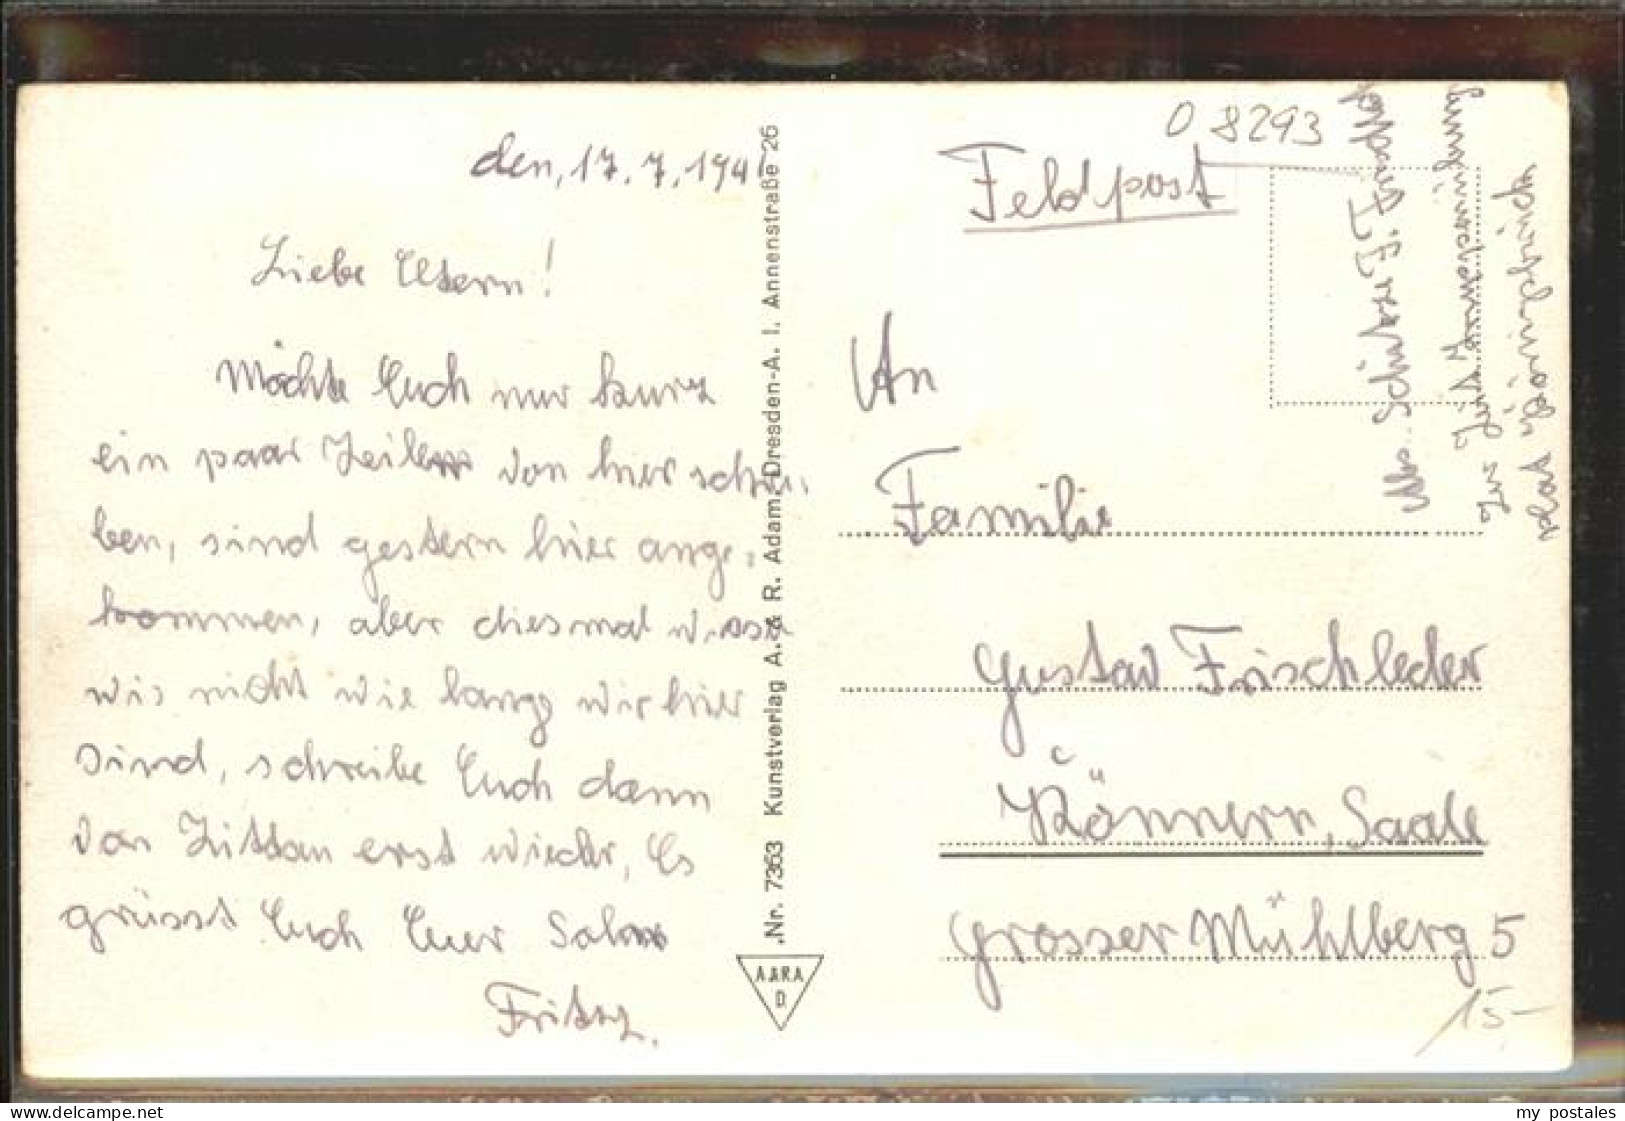 den, 17. 7. 194
Liebe Eltern!
Möchte Euch nur kurz
ein paar Zeilen von hier schrei-
ben, sind gestern hier ange-
kommen, aber diesmal wissen
wir nicht wie lange wir hier
sind, schreibe Euch dann
von Zittau erst wieder, Es
grüsst Euch Euer Sohn
Fritz.
Nr. 7363 Kunstverlag A. & R. Adam, Dresden-A. I. Annenstraße 26
A.&R.A.
D.
O 8293
Feldpost
An
Familie
Gustav Frischleder
Könnern, Saale
Grosser Mühlberg 5
15-
Abs. Schütze F.
Zur Zeit
nach Königsbrück
www.delcampe.net
my_postales